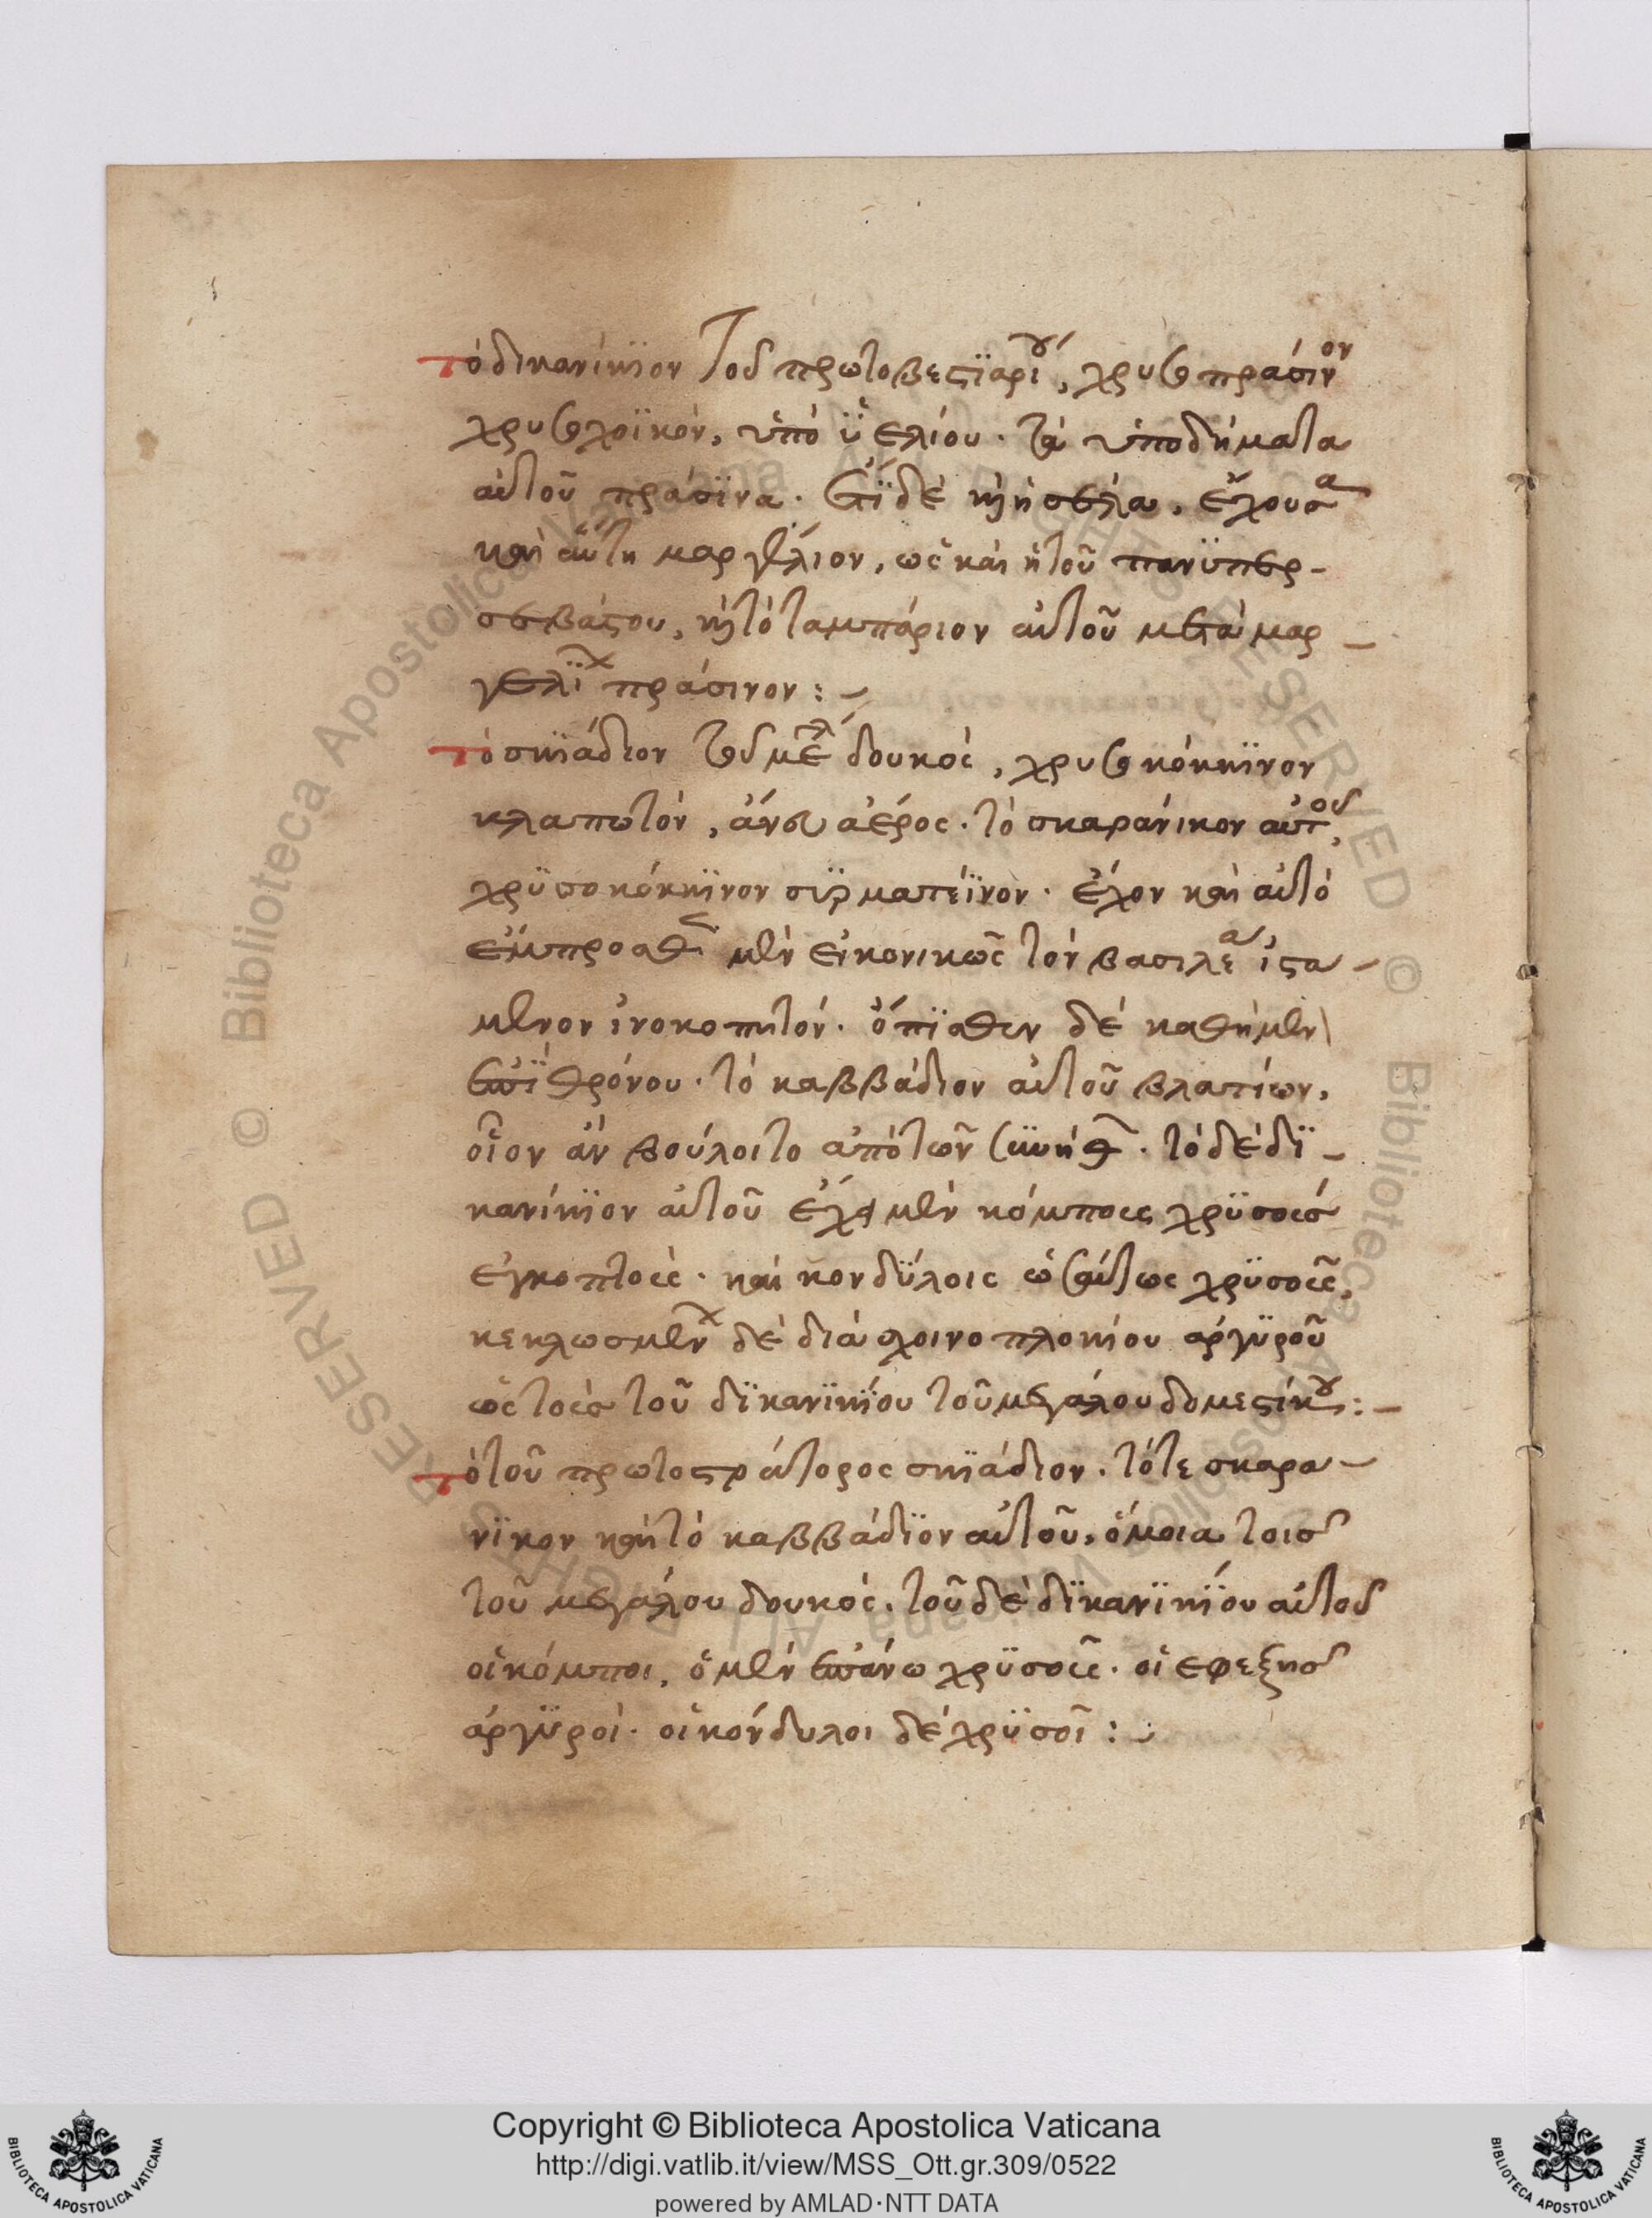 τὸ δικανίκϊον τοῦ πρωτοβεστϊαρίου, χρυσοπράσινον
χρυσοχοϊκὸν, ὑπὸ ὑελίου. τὰ ὑποδήματα
αὐτοῦ πράσϊνα. ἔτϊ δὲ καὶ ἡ σέλα, ἔχουσα
καὶ αὕτη μαργέλιον, ὡς καὶ ἡ τοῦ πανϋπερ-
σεβάστου, καὶ τὸ ταμπάριον αὐτοῦ μετὰ μαρ-
γελϊων πράσινον:-
τὸ σκϊάδιον τοῦ μεγάλου δουκὸς, χρυσοκόκκϊνον
κλαπωτὸν, ἄνευ ἀέρος. τὸ σκαράνικον αὐτοῦ,
χρϋσοκόκκϊνον συρματέϊνον. ἔχον καὶ αὐτὸ
ἔμπροσθεν μὲν εἰκονικῶς τὸν βασιλέα ἱστα-
μενον ἰνοκοπητόν. ὄπϊσθεν δὲ καθήμενον
ἐπῒ θρόνου. τὸ καββάδιον αὐτοῦ βλατίων,
οἷον ἂν βούλοιτο ἀπὸ τῶν συνήθων. τὸ δὲ δϊ-
κανίκϊον αὐτοῦ ἔχει μὲν κόμποις χρϋσοὶς
ἐγκοπτοὶς. καὶ κονδϋλοις ὡσαύτως χρϋσοῖς,
κεκλωσμένων δὲ διὰ σχοινοπλοκίου ἀργϋροῦ
ὡς τοὶς τοῦ δϊκανϊκϊου τοῦ μεγάλου δομεστίκου:-
τὸ τοῦ πρωτοστράτορος σκϊάδιον. τότε σκαρα-
νϊκον καὶ τὸ καββάδϊον αὐτοῦ, ὅμοια τοισ
τοῦ μεγάλου δουκὸς. τοῦ δὲ δϊκανϊκϊου αὐτοῦ
οἱ κόμποι, ὁ μὲν ἐπάνω χρϋσοῖς. οἱ ἐφεξησ
ἀργϋροὶ. οἱ κόνδυλοι δὲ χρϋσοῖ:-
Copyright © Biblioteca Apostolica Vaticana
http://digi.vatlib.it/view/MSS_Ott.gr.309/0522
powered by AMLAD·NTT DATA